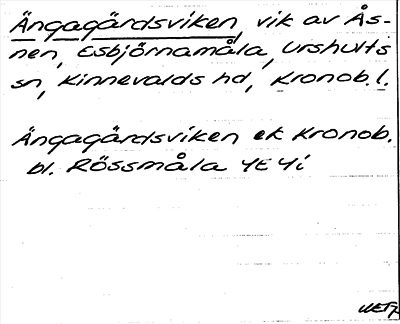 Ängagärdsviken, vik av Ås-
nen, Esbjörnamåla, Urshults
sn, Kinnevalds hd, Kronob. l.
Ängagärdsviken ek Kronob.
bl. Rössmåla 4E 4i